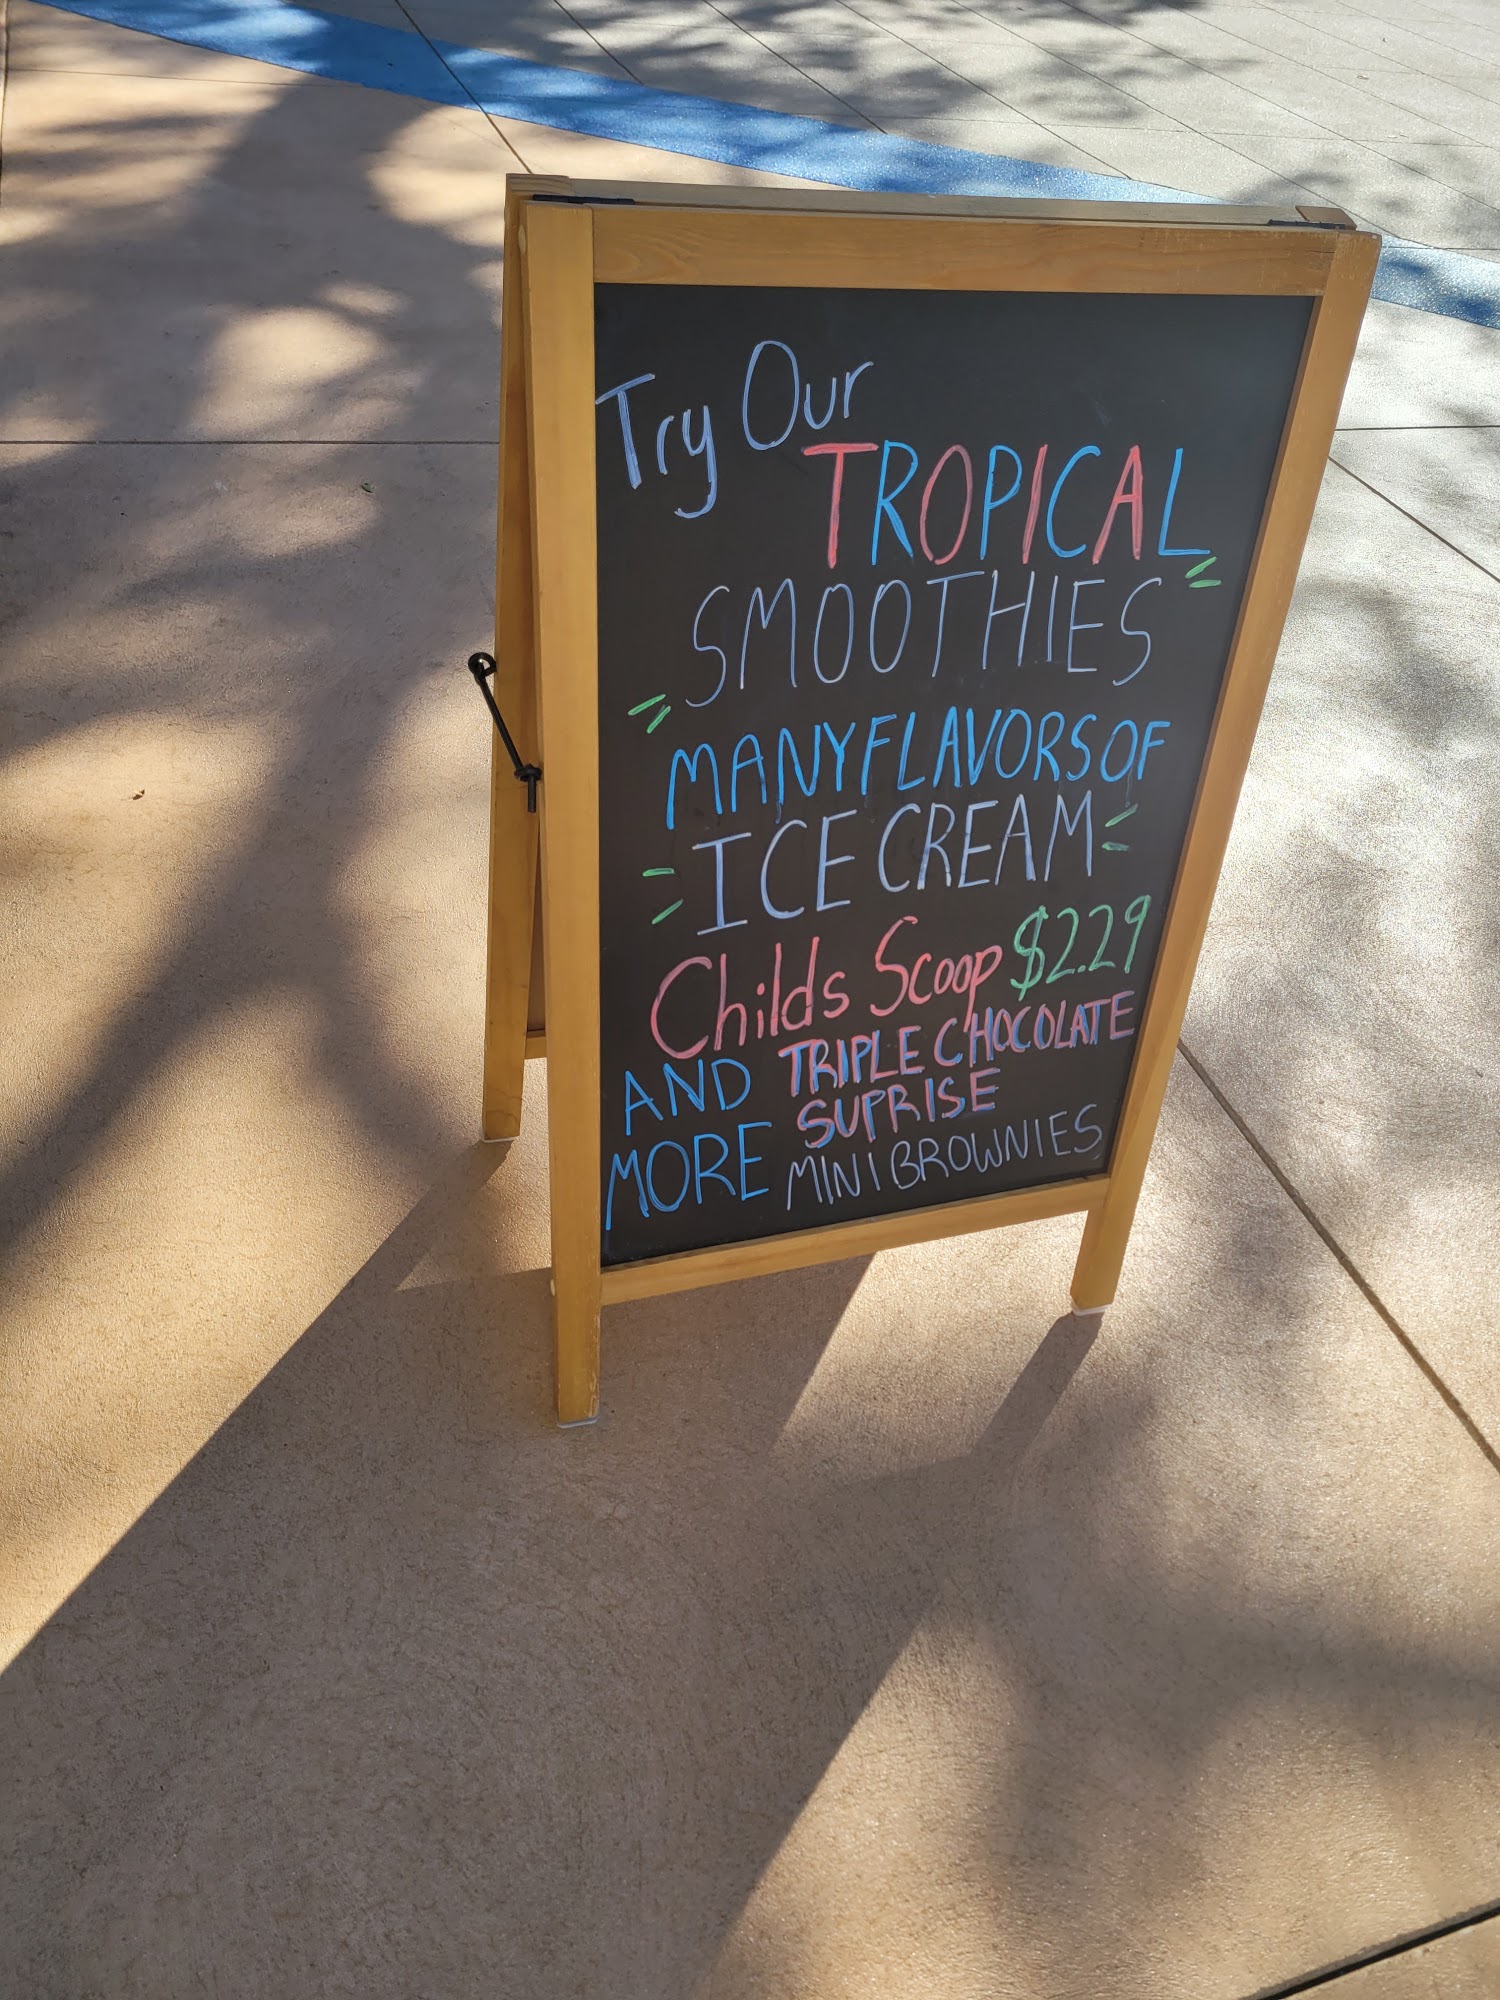 Try Our
TROPICAL
SMOOTHIES
MANY FLAVORS OF
ICE CREAM
Childs Scoop $2.29
AND
MORE
TRIPLE CHOCOLATE
SUPRISE
MINI BROWNIES